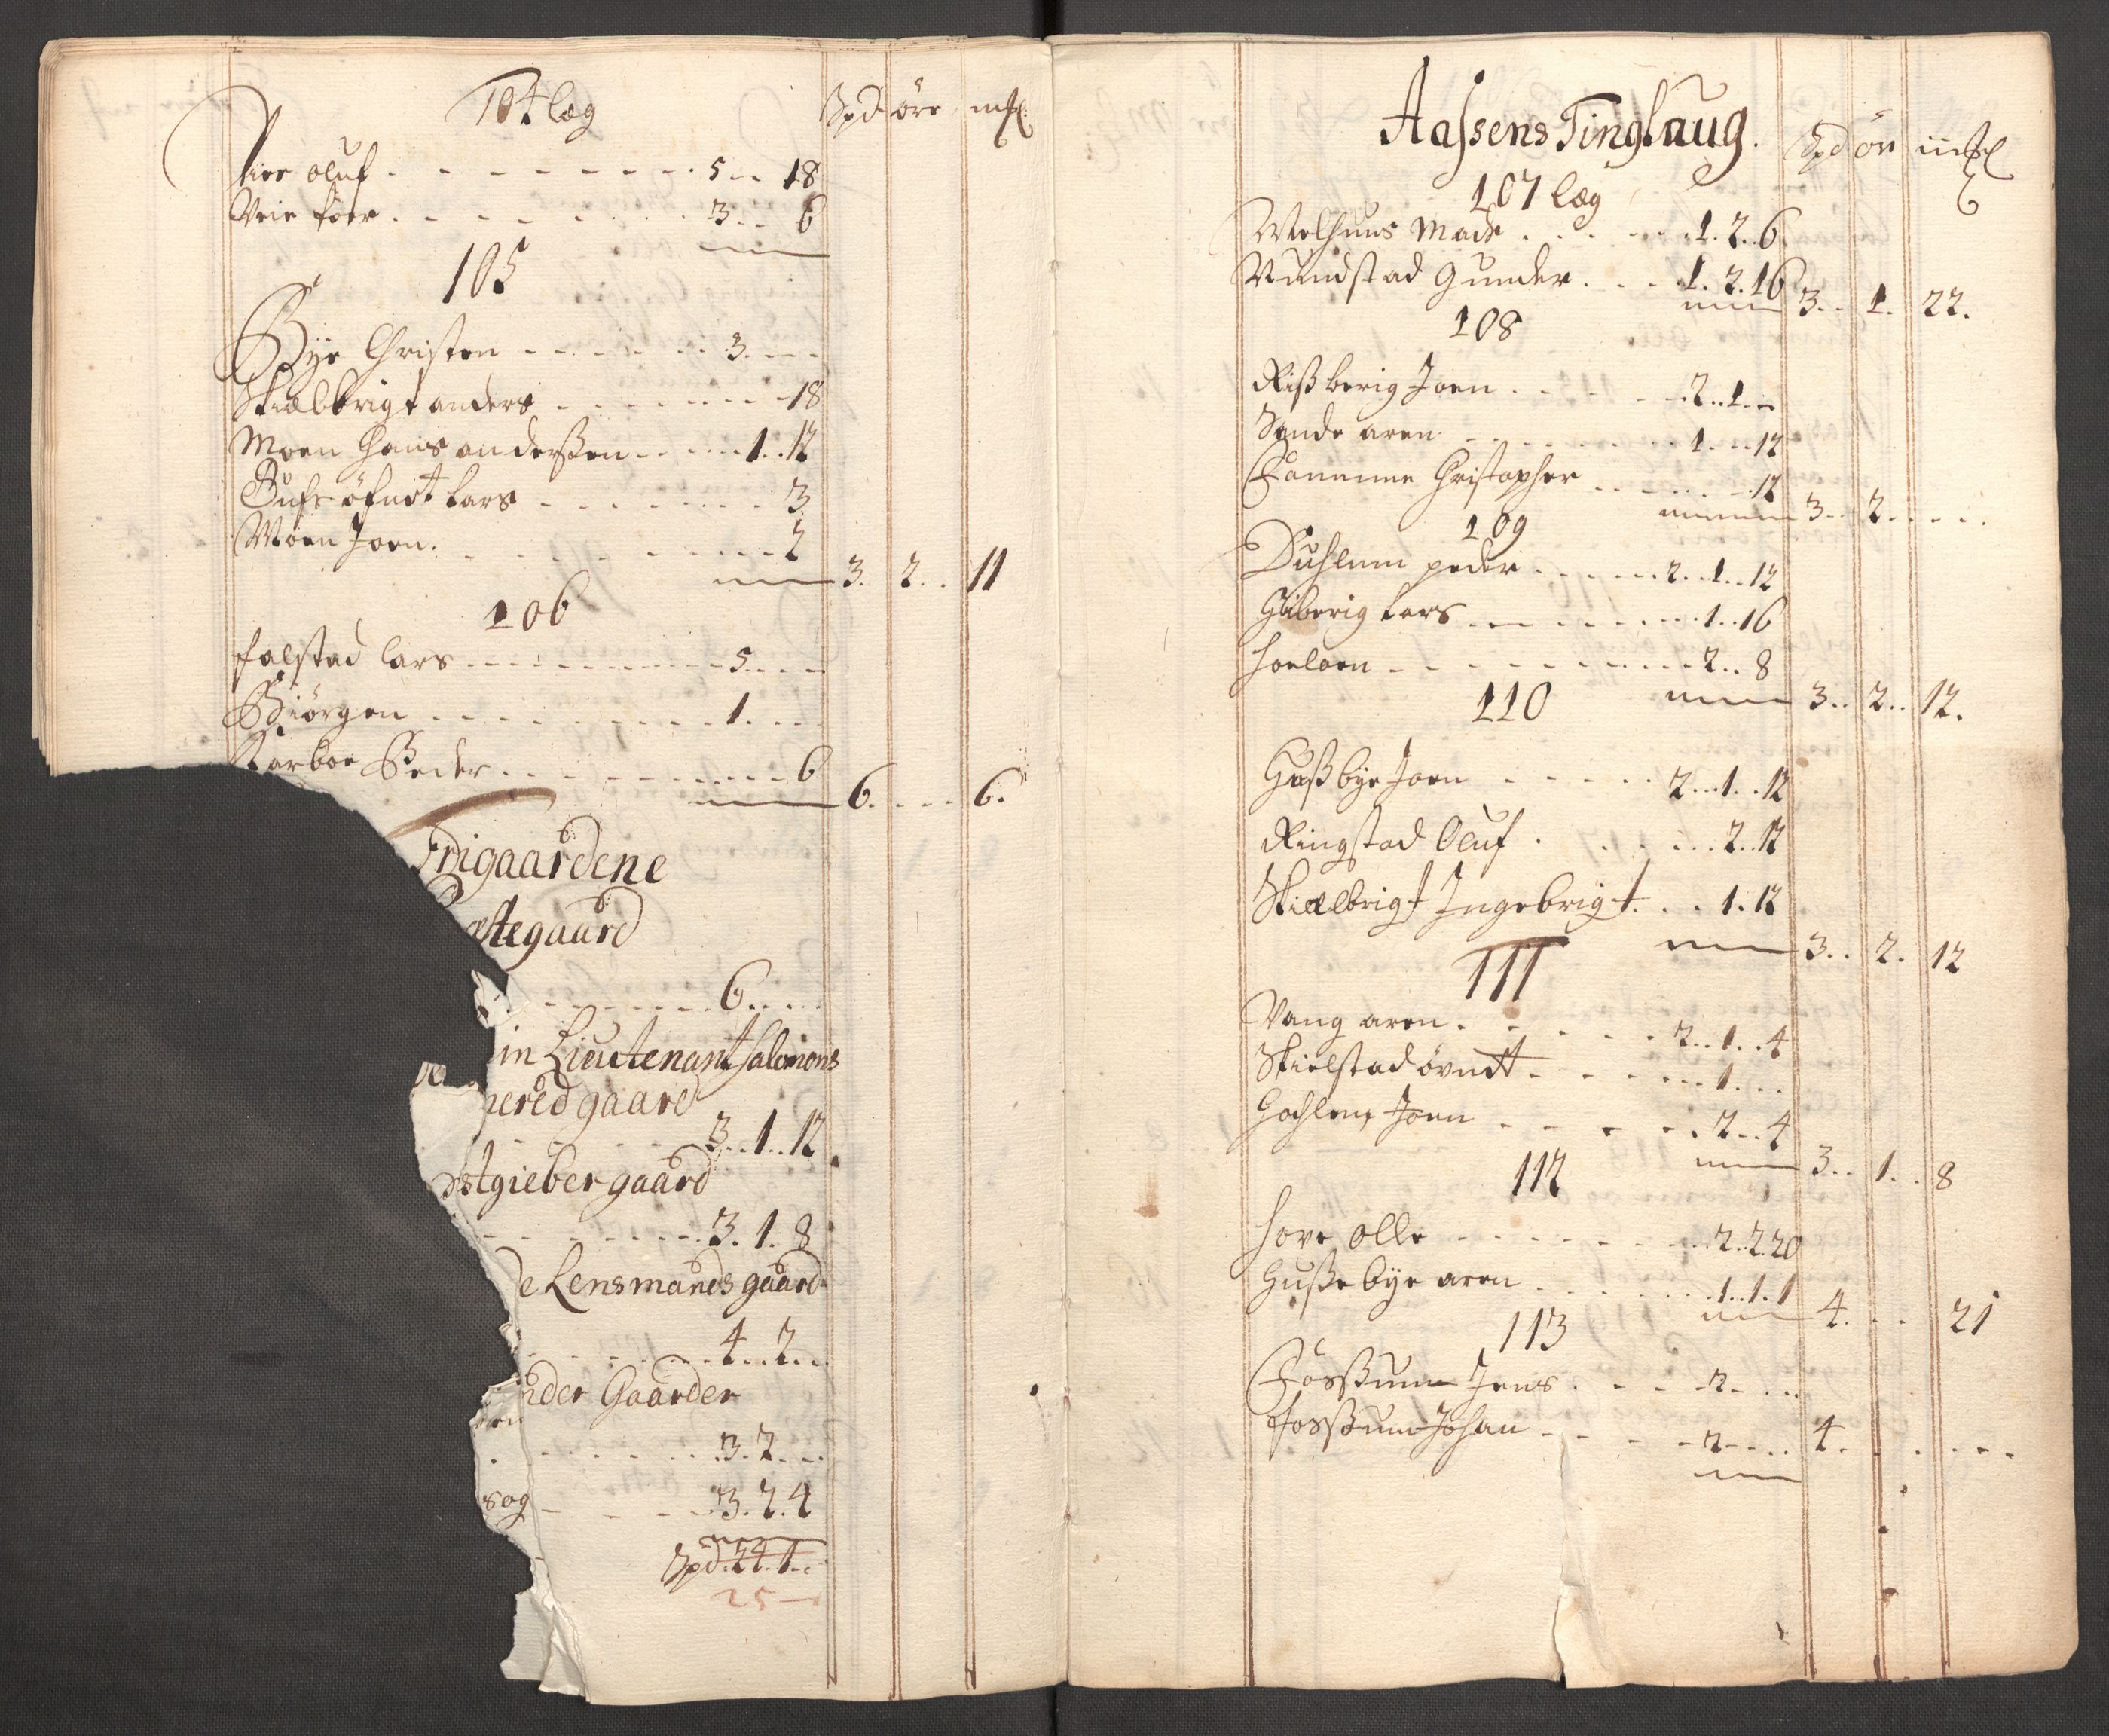 104 læg Spd öre mk
oluf . . . 5 .. 18
Veie . . . 3 .. 6
105
Bÿe Christen . . . 3 . . .
Skiælbrigt anders . . . 18
Moen hans anderßen . . . 1 .. 12
öfndt Lars . . . 3
Moen Joen . . . 2
3. 2. 11
106
falstad lars . . . 5 . . .
Biörgen . . . 1 . . .
Peder . . . 6
6. . . . 6.
rigaardene
stegaard
. . . 6 . . .
in Lieutenant Salomons
nered gaard
. . . 3 .. 1 .. 12
stgieber gaard
. . . 3. 1. 8
e Lensmands gaard
. . . 4 .. 2 . . .
nder Gaarder
. . . 3. 2 . . .
sog . . . 3. 2. 4
Spd. 24. 1. . .
25 —
Aassens Tinglaug. Spd ör mk
107 læg
Melhuus Mads . . . 1. 2. 6
Mundstad Gunder . . . 1. 2. 16
3. 1. 22.
108
Rißberig Joen . . . 2. 1. —
Sande aren . . . 1 . . 12
Fannime Christopher . . . 12
3. 2. . . .
109
Duhlum peder . . . 2. 1. 12
Giiberig Lars . . . 1. 16
hoeloen . . . 2. 8
3. 2. 12.
110
Hußbÿe Joen . . . 2. 1. 12
Ringstad Oluf . . . 2. 12
Skiælbrigt Ingebrigt . . . 1. 12
3. 2. 12
111
Vang aren . . . 2. 1. 4
Skielstad övndt . . . 1 . . .
Joen . . . 2. 4
3. 1. 8
112
hove olle . . . 2. 2. 20
Hußebÿe aren . . . 1. 1. 1
4. . . . 21
113
Fosßum Jens . . . 2 . . .
fosßum Johan . . . 2 . . .
4. . . .